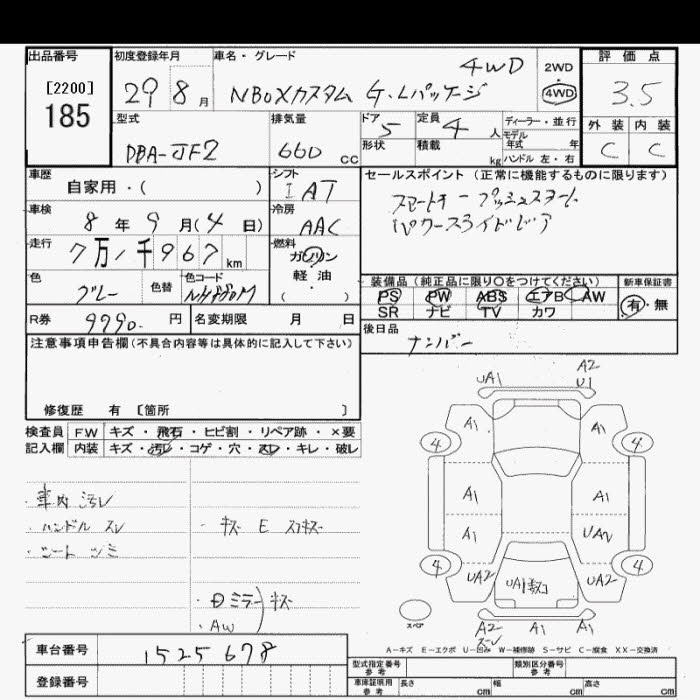 出品番号
[2200]
185
初度登録年月
29 8月
車名・グレード
4WD
NBOXカスタム G・Lパッケージ
2WD
4WD
評価点
3.5
外装 内装
C C
型式
DBA-JF2
排気量
660 cc
ドア 5
定員 4 人
形状
積載 kg
ディーラー・並行
モデル
年式 年
ハンドル 左・右
車歴
自家用・( )
シフト
I AT
車検
8年 9月(4日)
冷房
AAC
走行
7万1千967km
燃料
ガソリン
軽油
( )
色
グレー
色替
色コード
R券
9790 円
名変期限 月 日
セールスポイント(正常に機能するものに限ります)
スマートキー プッシュスタート
パワースライドドア
装備品(純正品に限り○をつけてください)
PS PW ABS エアB AW
SR ナビ TV カワ
新車保証書
有・無
後日品
ナンバー
注意事項申告欄(不具合内容等は具体的に記入して下さい)
修復歴 有 [箇所 ]
検査員
記入欄
FW キズ・飛石・ヒビ割・リペア跡・×要
内装 キズ・汚レ・コゲ・穴・スレ・キレ・破レ
・車内汚レ
・ハンドル スレ
・シート シミ
・キズ E スリキズ
・ミラー キズ
・AW
UA1
A2
U1
4 A1 A1 4
A1 A1
A1 UA2
4 UA2 UA1 UA2 4
スペア
A2 A1 A1
A-キズ E-エクボ U-凹み W-補修跡 S-サビ C-腐食 XX-交換済
車台番号
1525678
登録番号
型式指定番号
参考
類別区分番号
参考
車庫証明用
参考
長さ cm 幅 cm 高さ cm